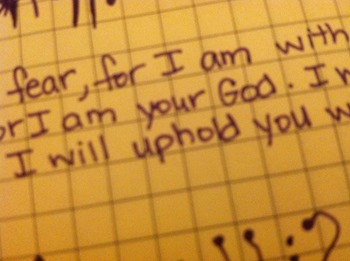 fear, for I am with
or I am your God. I
I will uphold you